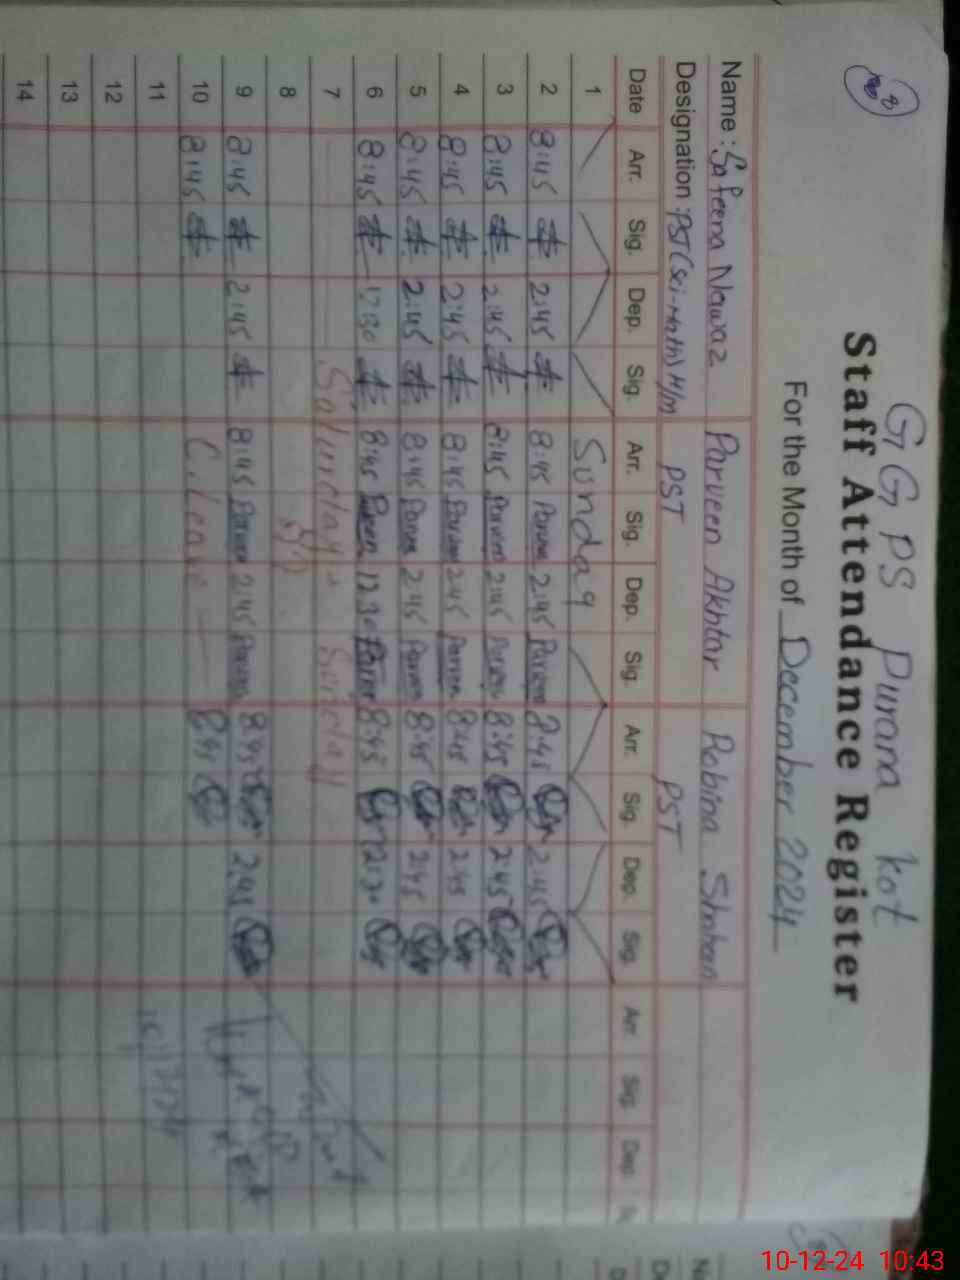 GGPS Purana kot
Staff Attendance Register
For the Month of December 2024
Name: Safeena Nawaz Parveen Akhtar Robina Shaheen
Designation: PST (Sci-Math) H/M PST PST
Date Arr. Sig. Dep. Sig. Arr. Sig. Dep. Sig. Arr. Sig. Dep. Sig. Arr. Sig. Dep.
1 Sunday
2 8:45 2:45 8:45 Parveen 2:45 Parveen 8:45 2:45
3 8:45 2:45 8:45 Parveen 2:45 Parveen 8:45 2:45
4 8:45 2:45 8:45 Parveen 2:45 Parveen 8:45 2:45
5 8:45 2:45 8:45 Parveen 2:45 Parveen 8:45 2:45
6 8:45 12:30 8:45 Parveen 12:30 Parveen 8:45 12:30
7 Saturday Sunday
8
9 8:45 2:45 8:45 Parveen 2:45 Parveen 8:45 2:45
10 8:45 C.leave 8:45
11
12
13
14
10-12-24 10:43